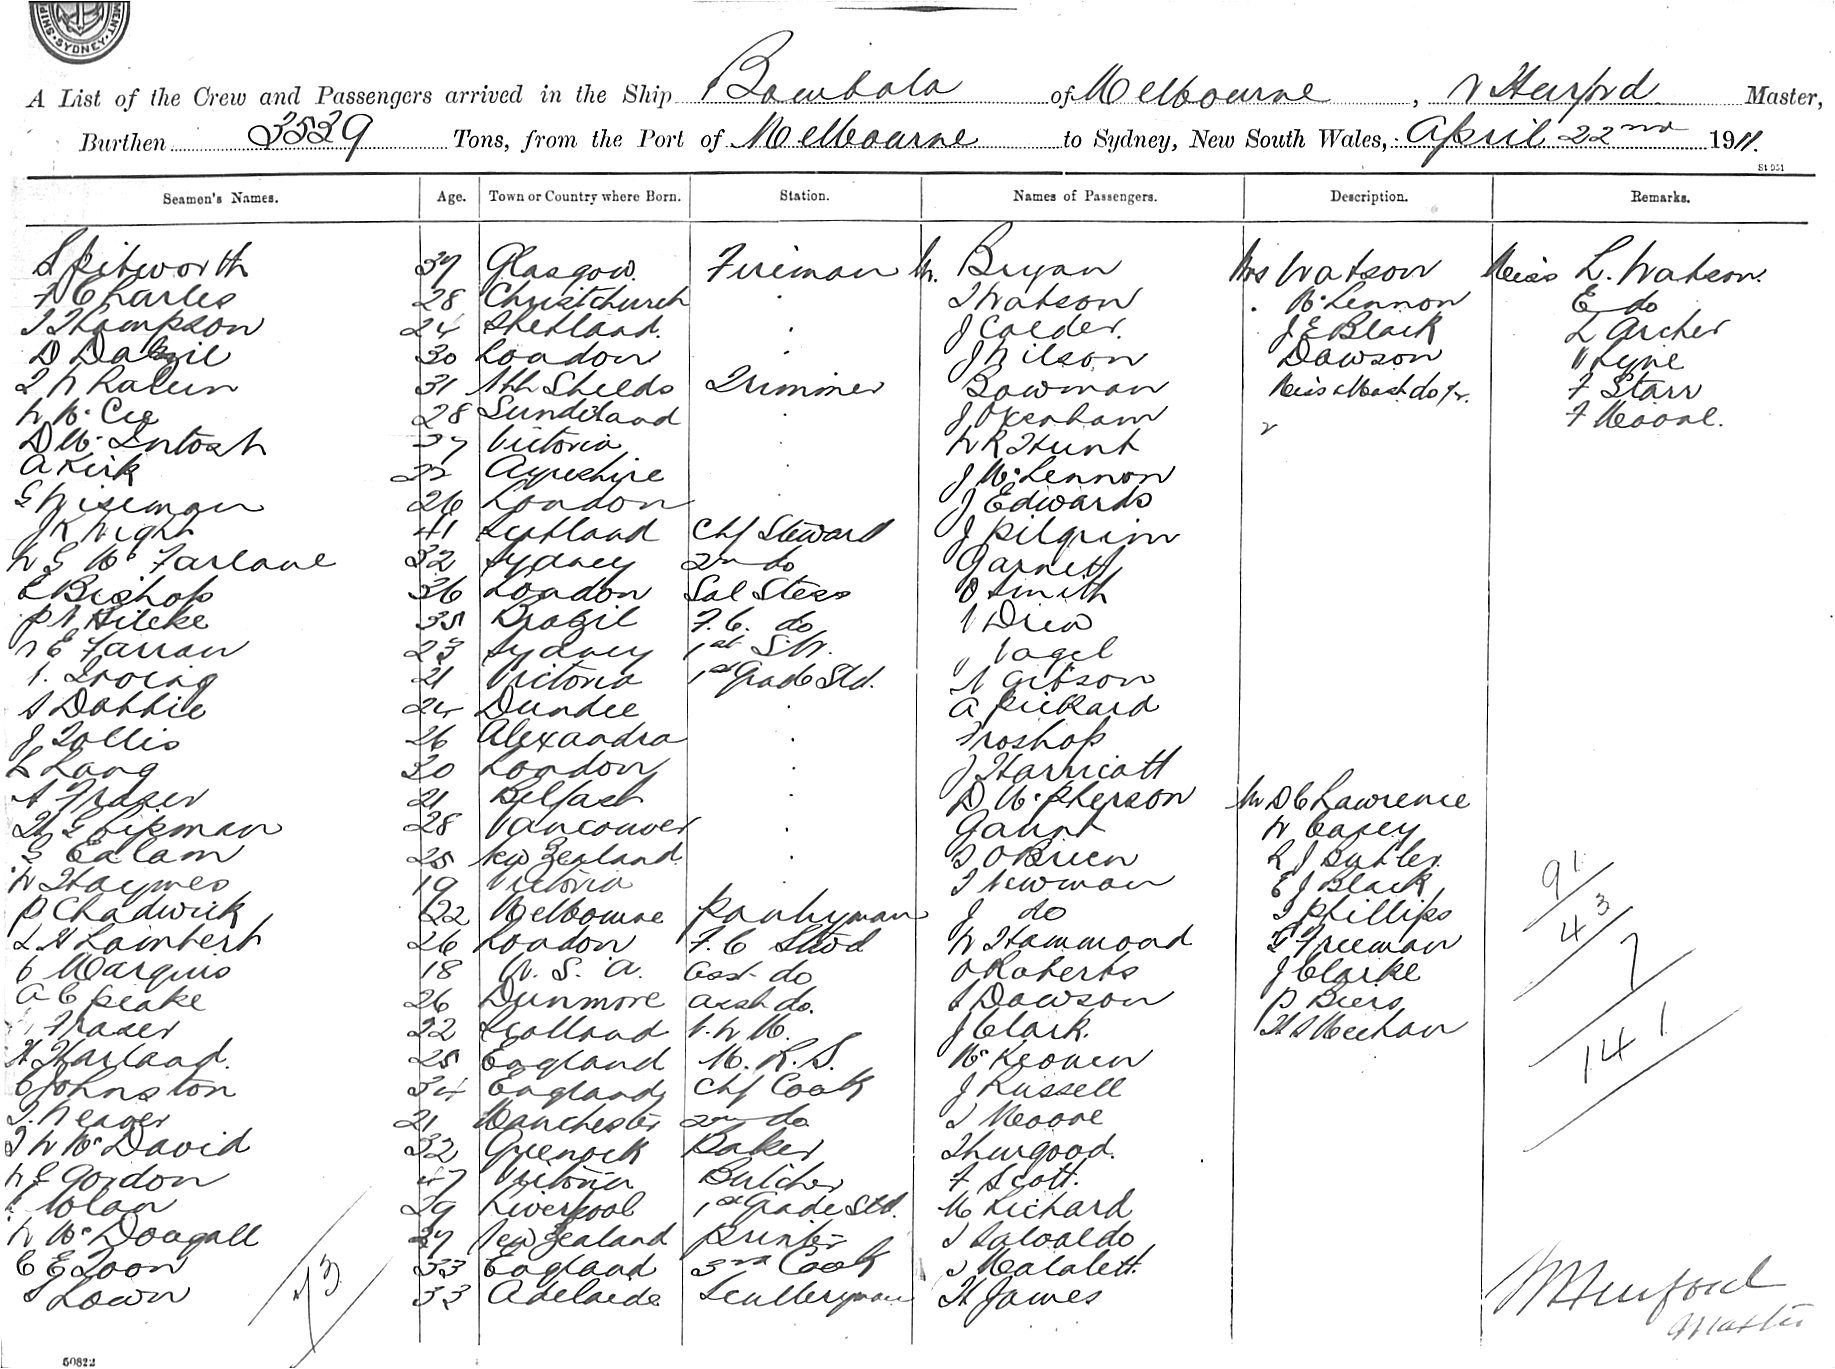 SHIP MENT. SYDNEY
A List of the Crew and Passengers arrived in the Ship Bombala of Melbourne, Hurford Master,
Burthen 3529 Tons, from the Port of Melbourne to Sydney, New South Wales, April 22nd 1911.
St 951
Seamen's Names. Age. Town or Country where Born. Station. Names of Passengers. Description. Remarks.
37 Glasgow. Fireman Mr. Bryan Mrs Watson Miss L. Watson.
F Charles 28 Christchurch . J Watson . McLennon E do
J Thompson 24 Shetland. . J Calder. J E Black L Archer
D Dalzil 30 London . J Wilson Dawson Lyne
31 Nth Shields Trimmer Bowman Miss & Mast do F Starr
28 Sunderland . J Oxenham F Moore.
D McIntosh 37 Victoria . W R Hunt
A Kirk 32 Ayreshire . J McLennon
G Wiseman 26 London J Edwards
J K Night 41 Scotland Chf Steward J Pilgrim
W G McFarlane 32 Sydney 2nd do Garnett
E Bishop 36 London Sal Stess O Smith
35 Brazil F. C. do Drew
E Farran 23 Sydney 1st S.W. Vagel
Irving 21 Victoria 1st Grade Std. N Gibson
S Dobbie 24 Dundee . A Pickard
J Tollis 26 Alexandra . Froshop
L Lang 30 London . J Harricott
A Fraser 21 Belfast . D McPherson Mr D C Lawrence
H G Lipman 28 Vancouver . Gaunt W Casey
G Ealam 25 New Zealand . O'Brien R J Butler
W Haymes 19 Victoria . J Newman E J Black 91
P Chadwick 22 Melbourne Pantryman J do J Phillips 43
L H Lambert 26 London F. C Stwd W Hammond G Freeman 7
Marquis 18 U. S. A. Asst do O Roberts J Clarke
A C Peake 26 Dunmore Asst do. S Dawson P Biers
Fraser 22 Scotland J Clark. H S Meehan 141
H Harland. 25 England M. R. S. McKeown
C Johnston 34 England Chf Cook J Russell
J. Weaver 21 Manchester 2nd do J Moore
J W McDavid 32 Greenock Baker Thurgood.
W G Gordon 47 Victoria Butcher F Scott.
Nolan 29 Liverpool 1st Grade Std. M Richard
W McDougall 37 New Zealand Printer Salvaldo
C E Toon 33 England 3rd Cook
Lown 33 Adelaide Sculleryman H James
Hurford
Master
50822